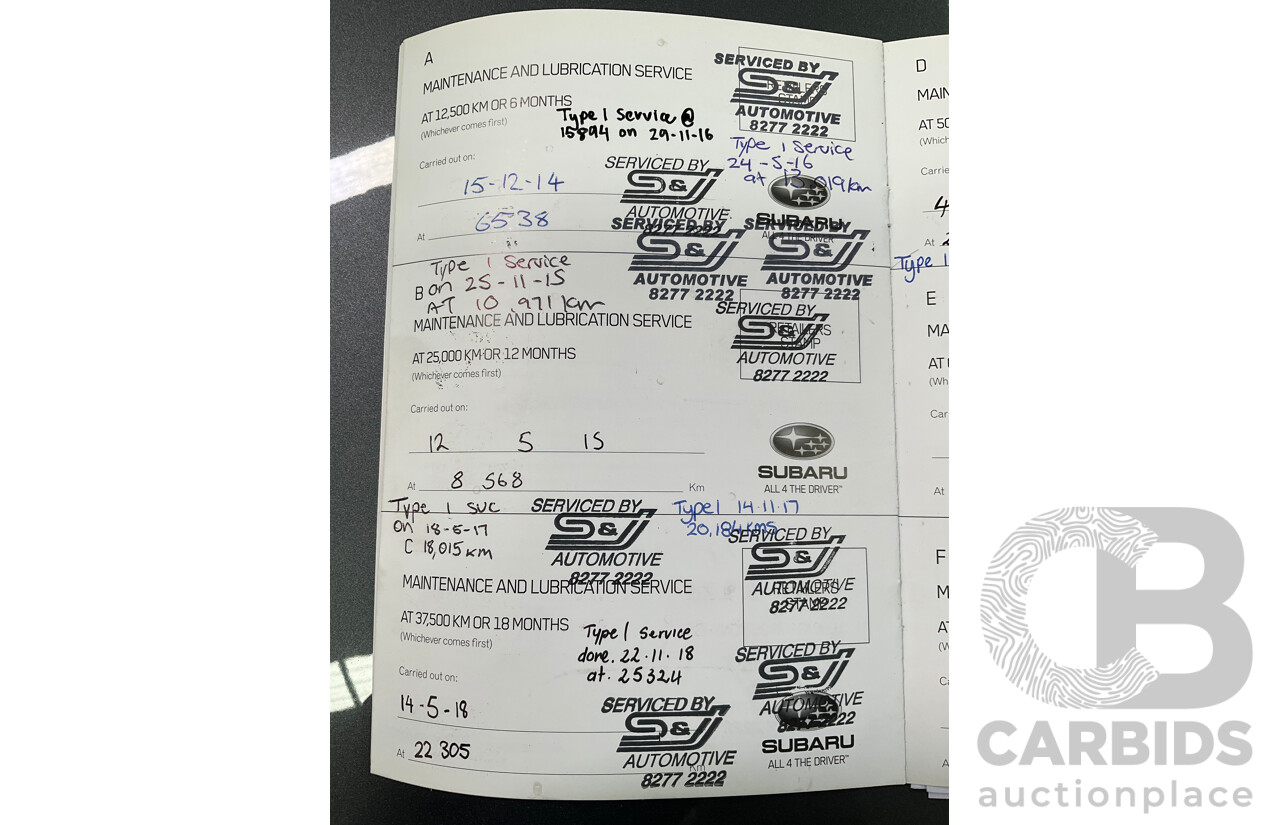 A
MAINTENANCE AND LUBRICATION SERVICE
AT 12,500 KM OR 6 MONTHS
(Whichever comes first)
Type 1 Service @
15894 on 29-11-16
SERVICED BY
S&J
AUTOMOTIVE
8277 2222
Type 1 Service
24-5-16
at 13,019km
Carried out on:
15-12-14
SERVICED BY
S&J
AUTOMOTIVE
8277 2222
SUBARU
ALL 4 THE DRIVER
At 6538
SERVICED BY
S&J
AUTOMOTIVE
8277 2222
SERVICED BY
S&J
AUTOMOTIVE
8277 2222
Type 1 Service
on 25-11-15
AT 10,971 km
B
MAINTENANCE AND LUBRICATION SERVICE
AT 25,000 KM OR 12 MONTHS
(Whichever comes first)
SERVICED BY
S&J
RETAILERS
STAMP
AUTOMOTIVE
8277 2222
Carried out on:
12 5 15
At 8 568 Km
SUBARU
ALL 4 THE DRIVER™
Type 1 svc
on 18-5-17
18,015 km
SERVICED BY
S&J
AUTOMOTIVE
8277 2222
Type 1 14.11.17
20,184kms
SERVICED BY
S&J
AUTOMOTIVE
RETAILERS
STAMP
8277 2222
C
MAINTENANCE AND LUBRICATION SERVICE
AT 37,500 KM OR 18 MONTHS
(Whichever comes first)
Type 1 service
done. 22.11.18
at. 25324
SERVICED BY
S&J
AUTOMOTIVE
8277 2222
Carried out on:
14-5-18
At 22 305 Km
SERVICED BY
S&J
AUTOMOTIVE
8277 2222
SUBARU
ALL 4 THE DRIVER™
D
MAIN
AT 50
(Which
Carrie
4
At 2
Type 1
E
MA
AT
(Wh
Car
At
F
M
A
CB
CARBIDS
auctionplace